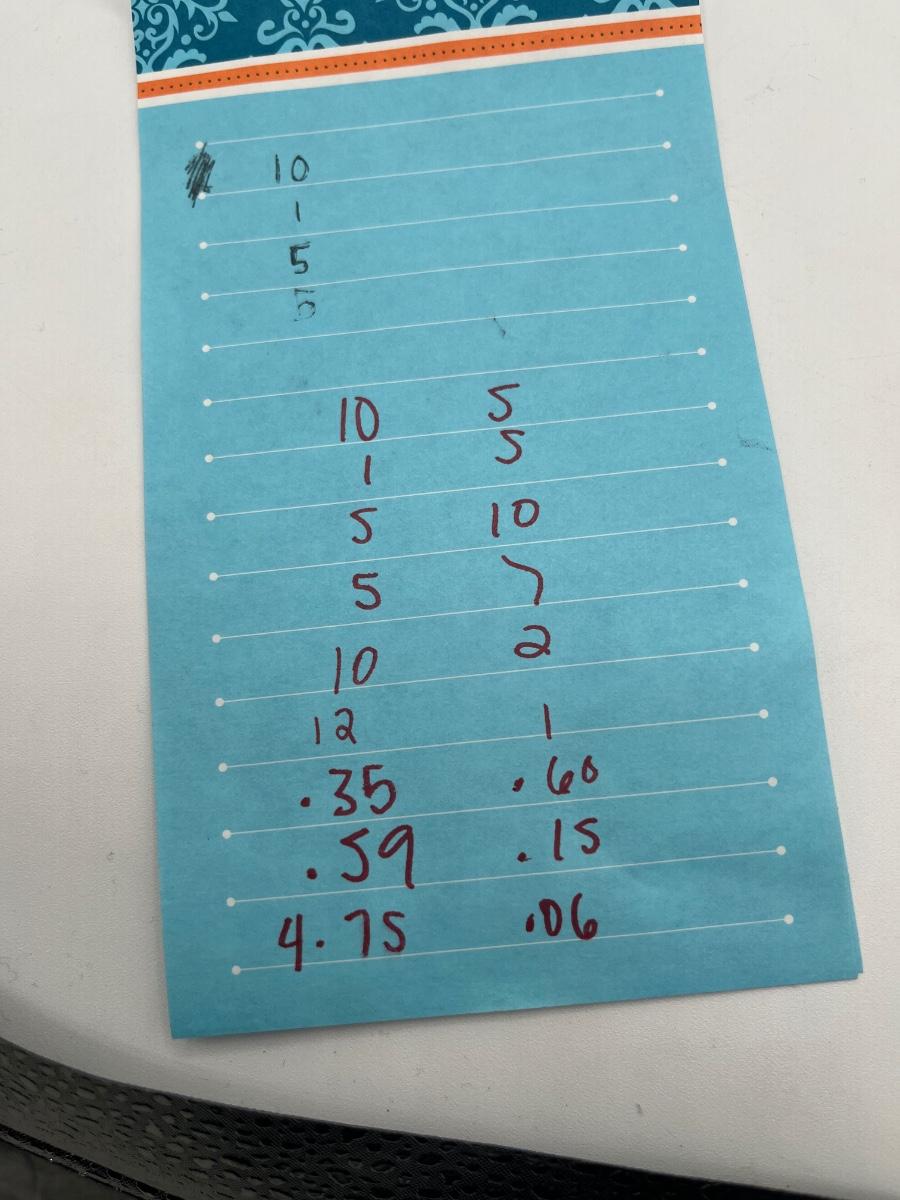 10
1
5
5
10 5
1 5
5 10
5 7
10 2
12 1
.35 .60
.59 .15
4.75 .06